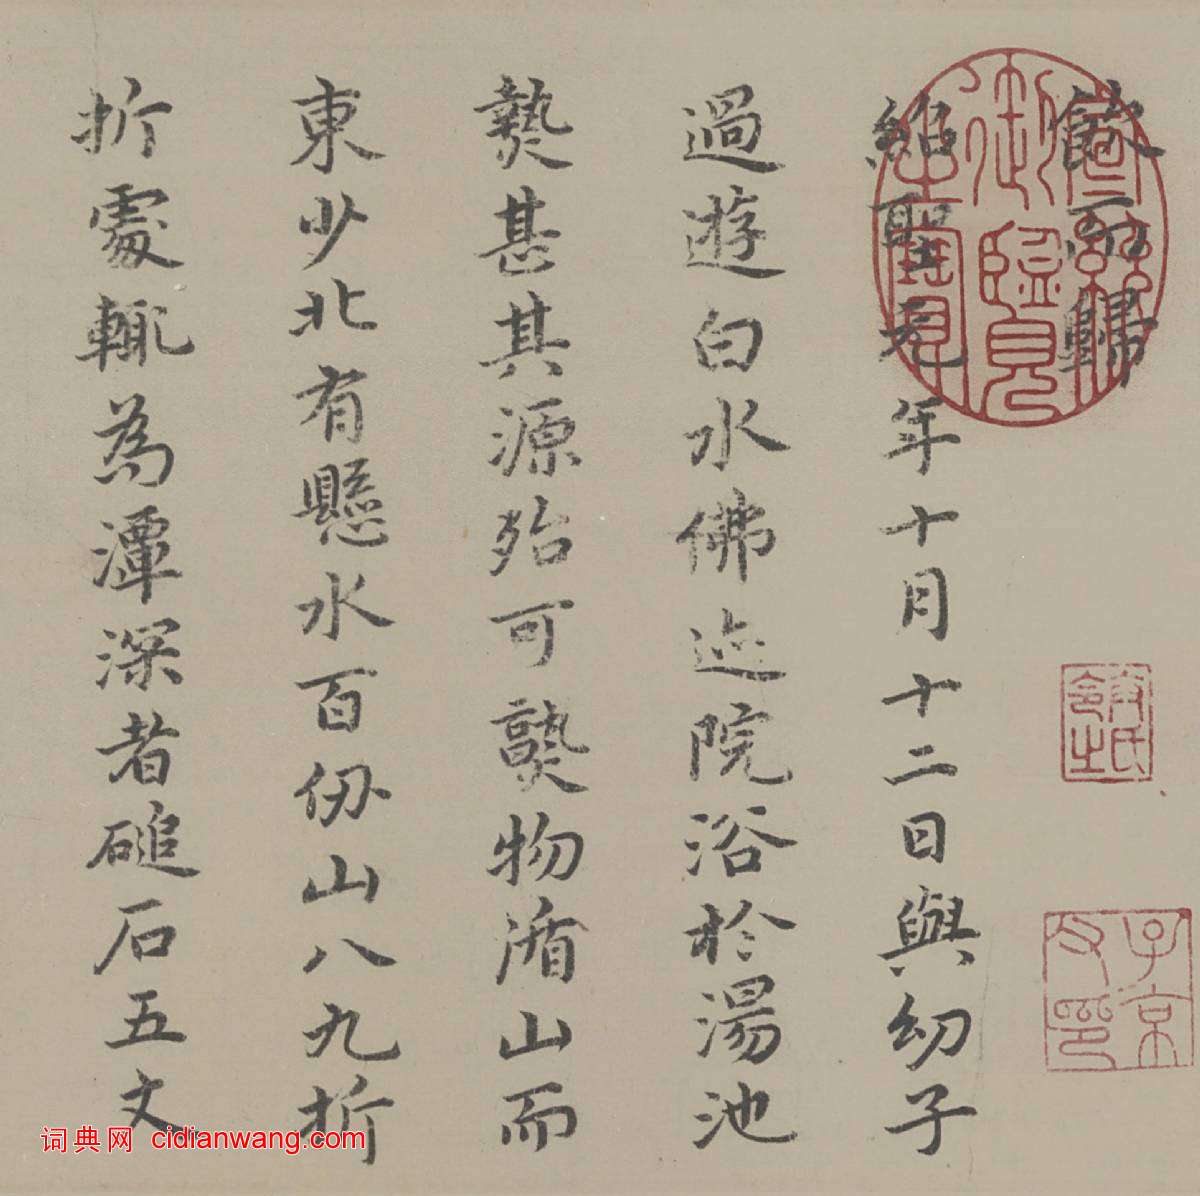 飲而歸
紹聖元年十月十二日與幼子
過遊白水佛迹院浴於湯池
熱甚其源殆可熟物循山而
東少北有懸水百仞山八九折
折處輒為潭深者磓石五丈
宣統御覽之寶
子京父印
词典网 cidianwang.com